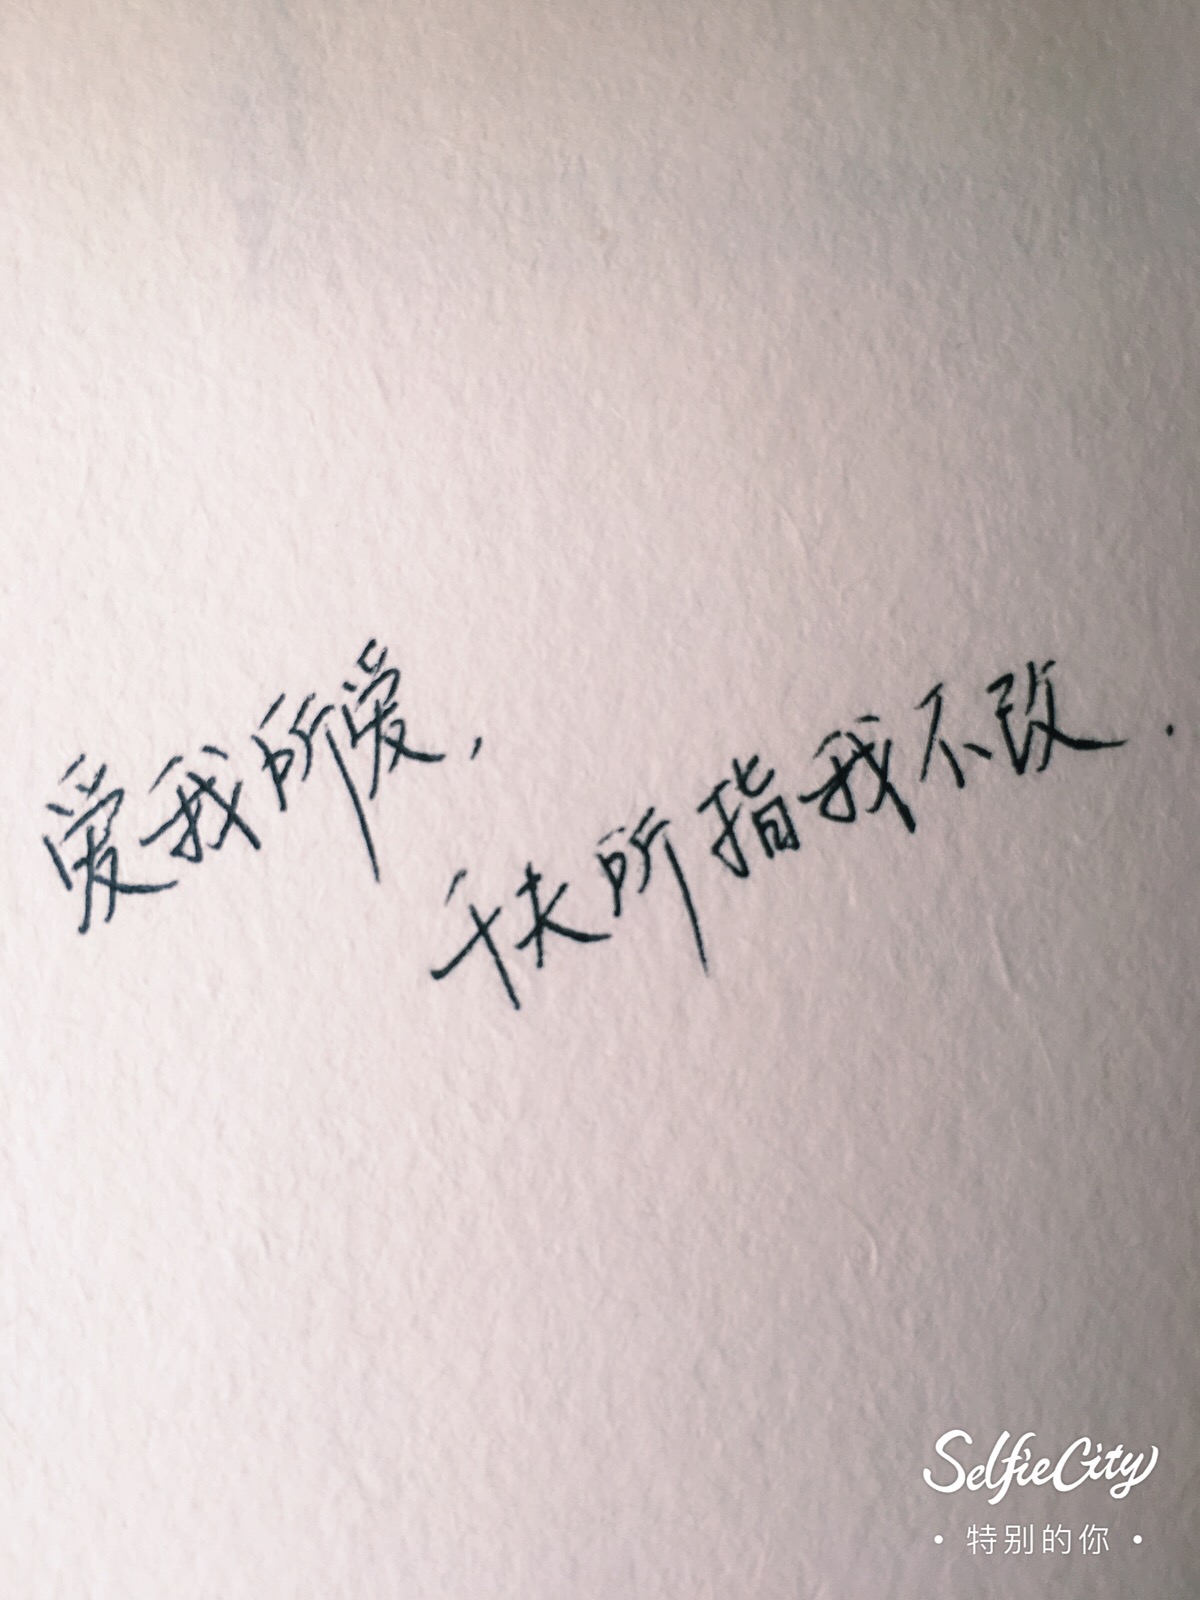 爱我所爱，
千夫所指我不改.
SelfieCity
· 特别的你 ·